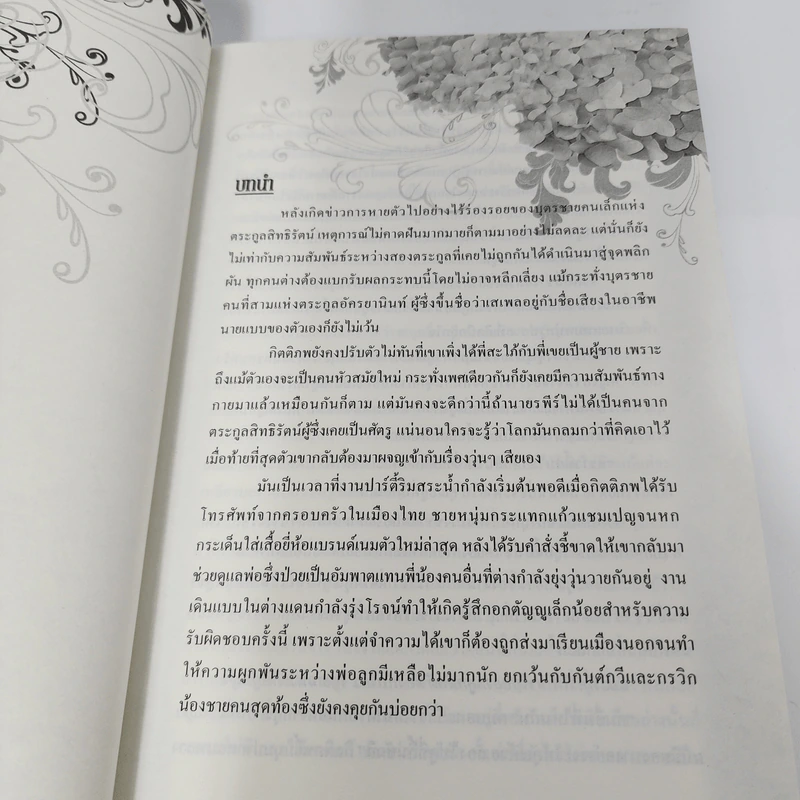 บทนำ
หลังเกิดข่าวการหายตัวไปอย่างไร้ร่องรอยของบุตรชายคนเล็กแห่ง
ตระกูลสิทธิรัตน์ เหตุการณ์ไม่คาดฝันมากมายก็ตามมาอย่างไม่ลดละ แต่นั่นก็ยัง
ไม่เท่ากับความสัมพันธ์ระหว่างสองตระกูลที่เคยไม่ถูกกันได้ดำเนินมาสู่จุดพลิก
ผัน ทุกคนต่างต้องแบกรับผลกระทบนี้โดยไม่อาจหลีกเลี่ยง แม้กระทั่งบุตรชาย
คนที่สามแห่งตระกูลอัครยานินท์ ผู้ซึ่งขึ้นชื่อว่าเสเพลอยู่กับชื่อเสียงในอาชีพ
นายแบบของตัวเองก็ยังไม่เว้น
กิตติภพยังคงปรับตัวไม่ทันที่เขาเพิ่งได้พี่สะใภ้กับพี่เขยเป็นผู้ชาย เพราะ
ถึงแม้ตัวเองจะเป็นคนหัวสมัยใหม่ กระทั่งเพศเดียวกันก็ยังเคยมีความสัมพันธ์ทาง
กายมาแล้วเหมือนกันก็ตาม แต่มันคงจะดีกว่านี้ถ้านายรพีร์ไม่ได้เป็นคนจาก
ตระกูลสิทธิรัตน์ผู้ซึ่งเคยเป็นศัตรู แน่นอนใครจะรู้ว่าโลกมันกลมกว่าที่คิดเอาไว้
เมื่อท้ายที่สุดตัวเขากลับต้องมาผจญเข้ากับเรื่องวุ่นๆ เสียเอง
มันเป็นเวลาที่งานปาร์ตี้ริมสระน้ำกำลังเริ่มต้นพอดีเมื่อกิตติภพได้รับ
โทรศัพท์จากครอบครัวในเมืองไทย ชายหนุ่มกระแทกแก้วแชมเปญจนหก
กระเด็นใส่เสื้อยี่ห้อแบรนด์เนมตัวใหม่ล่าสุด หลังได้รับคำสั่งชี้ขาดให้เขากลับมา
ช่วยดูแลพ่อซึ่งป่วยเป็นอัมพาตแทนพี่น้องคนอื่นที่ต่างกำลังยุ่งวุ่นวายกันอยู่ งาน
เดินแบบในต่างแดนกำลังรุ่งโรจน์ทำให้เกิดรู้สึกอกตัญญูเล็กน้อยสำหรับความ
รับผิดชอบครั้งนี้ เพราะตั้งแต่จำความได้เขาก็ต้องถูกส่งมาเรียนเมืองนอกจนทำ
ให้ความผูกพันระหว่างพ่อลูกมีเหลือไม่มากนัก ยกเว้นกับกันต์กวีและกรวิก
น้องชายคนสุดท้องซึ่งยังคงคุยกันบ่อยกว่า